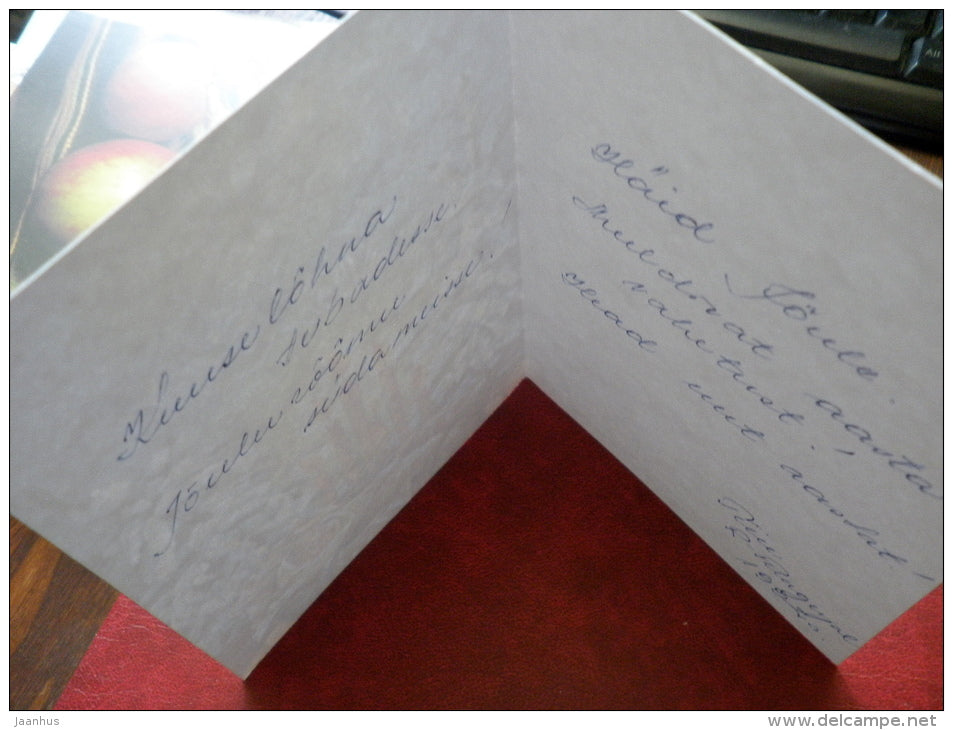 Kuuse lõhna
tubadesse.
Jõulu rõõmu
südameisse!
Häid Jõule.
Meeldivat aasta
vahetust!
Head uut aastat!
jaanhus
www.delcampe.net